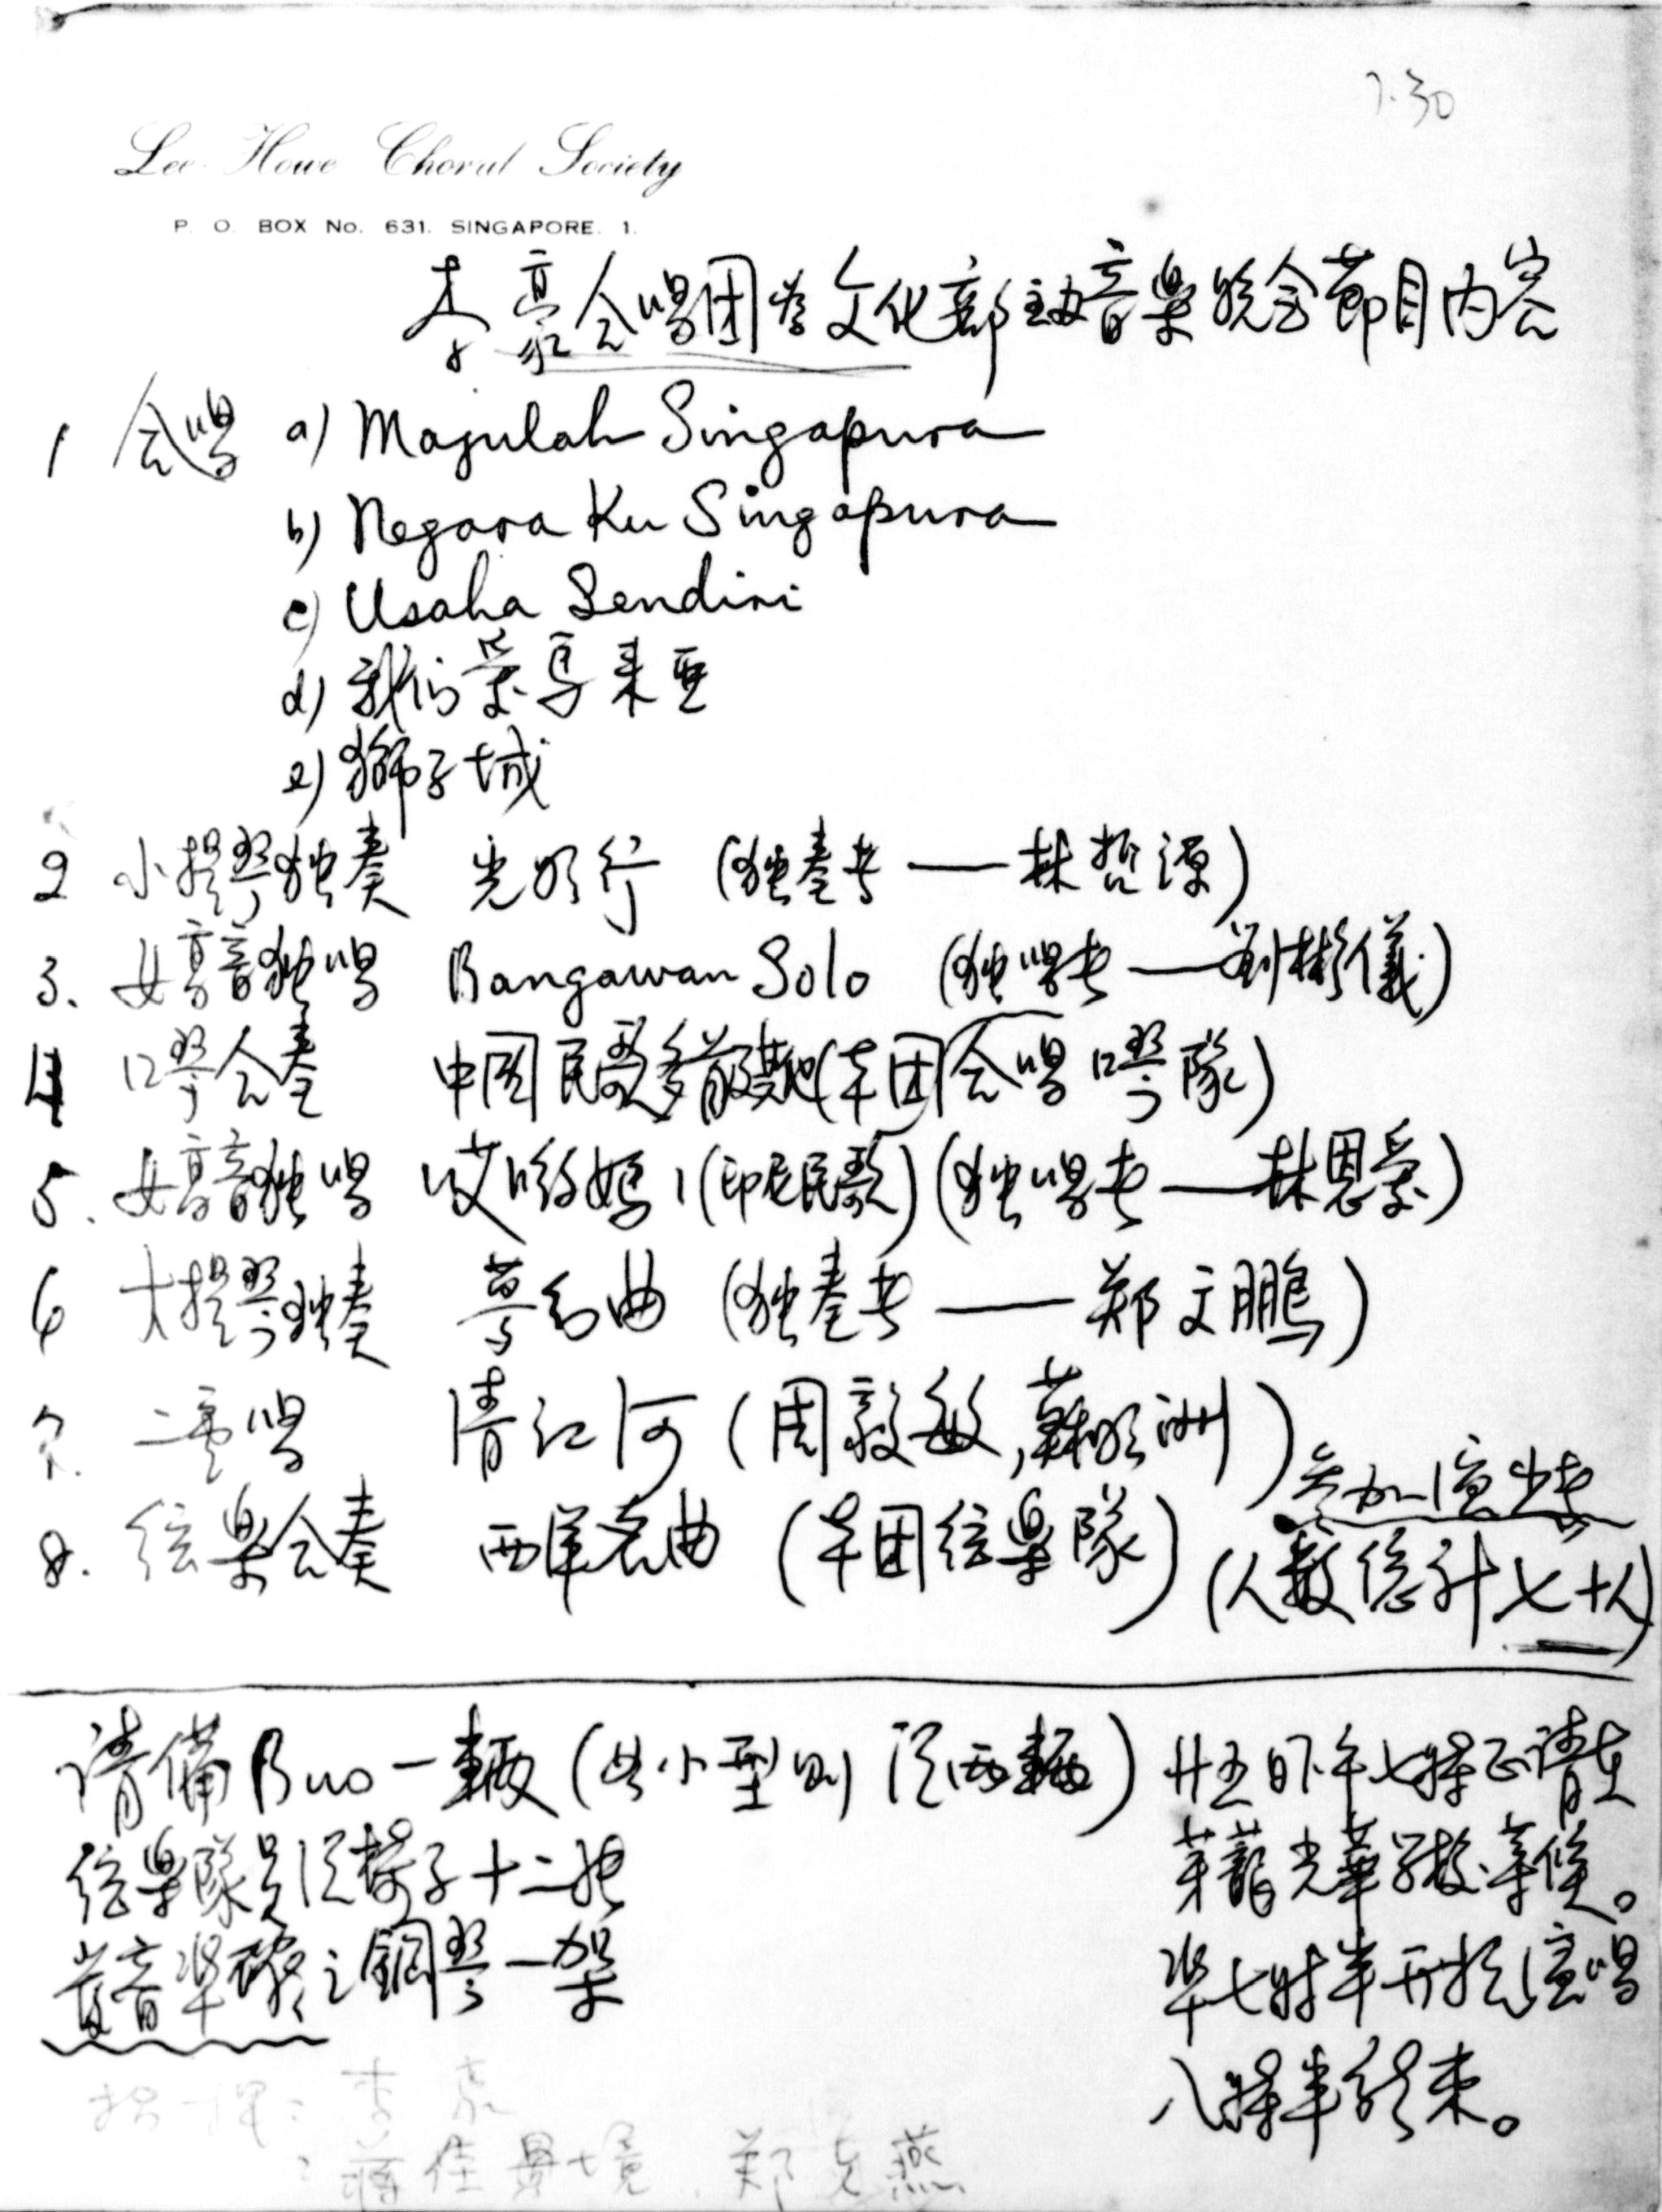 7.30
Lee Howe Choral Society
P. O. BOX No. 631. SINGAPORE. 1.
李豪合唱团为文化部主办音樂晚会節目内容
1 合唱 a) Majulah Singapura
b) Negara Ku Singapura
c) Usaha Sendiri
d) 我们爱馬来亚
e) 獅子城
2 小提琴独奏 光明行 (独奏者——林哲源)
3. 女高音独唱 Bangawan Solo (独唱者——劉彬儀)
4 口琴合奏 中國民歌 (本团合唱口琴隊)
5. 女高音独唱 哎哟妈 (印尼民歌) (独唱者——林恩爱)
6 大提琴独奏 夢幻曲 (独奏者——郑文鵬)
7. 二重唱 清江河 (周毅敏, 蘇明洲)
8. 弦樂合奏 西洋名曲 (本团弦樂隊)
参加演出者
(人数总計七十人)
请備 Bus 一輛 (如小型则须两輛)
弦樂隊員须椅子十二张
發音準確之鋼琴一架
廿五日下午七時正请在
芽蘢光華学校等候。
準七時半开始演唱
八時半結束。
指揮: 李豪
: 蒋佳景境. 郑克燕